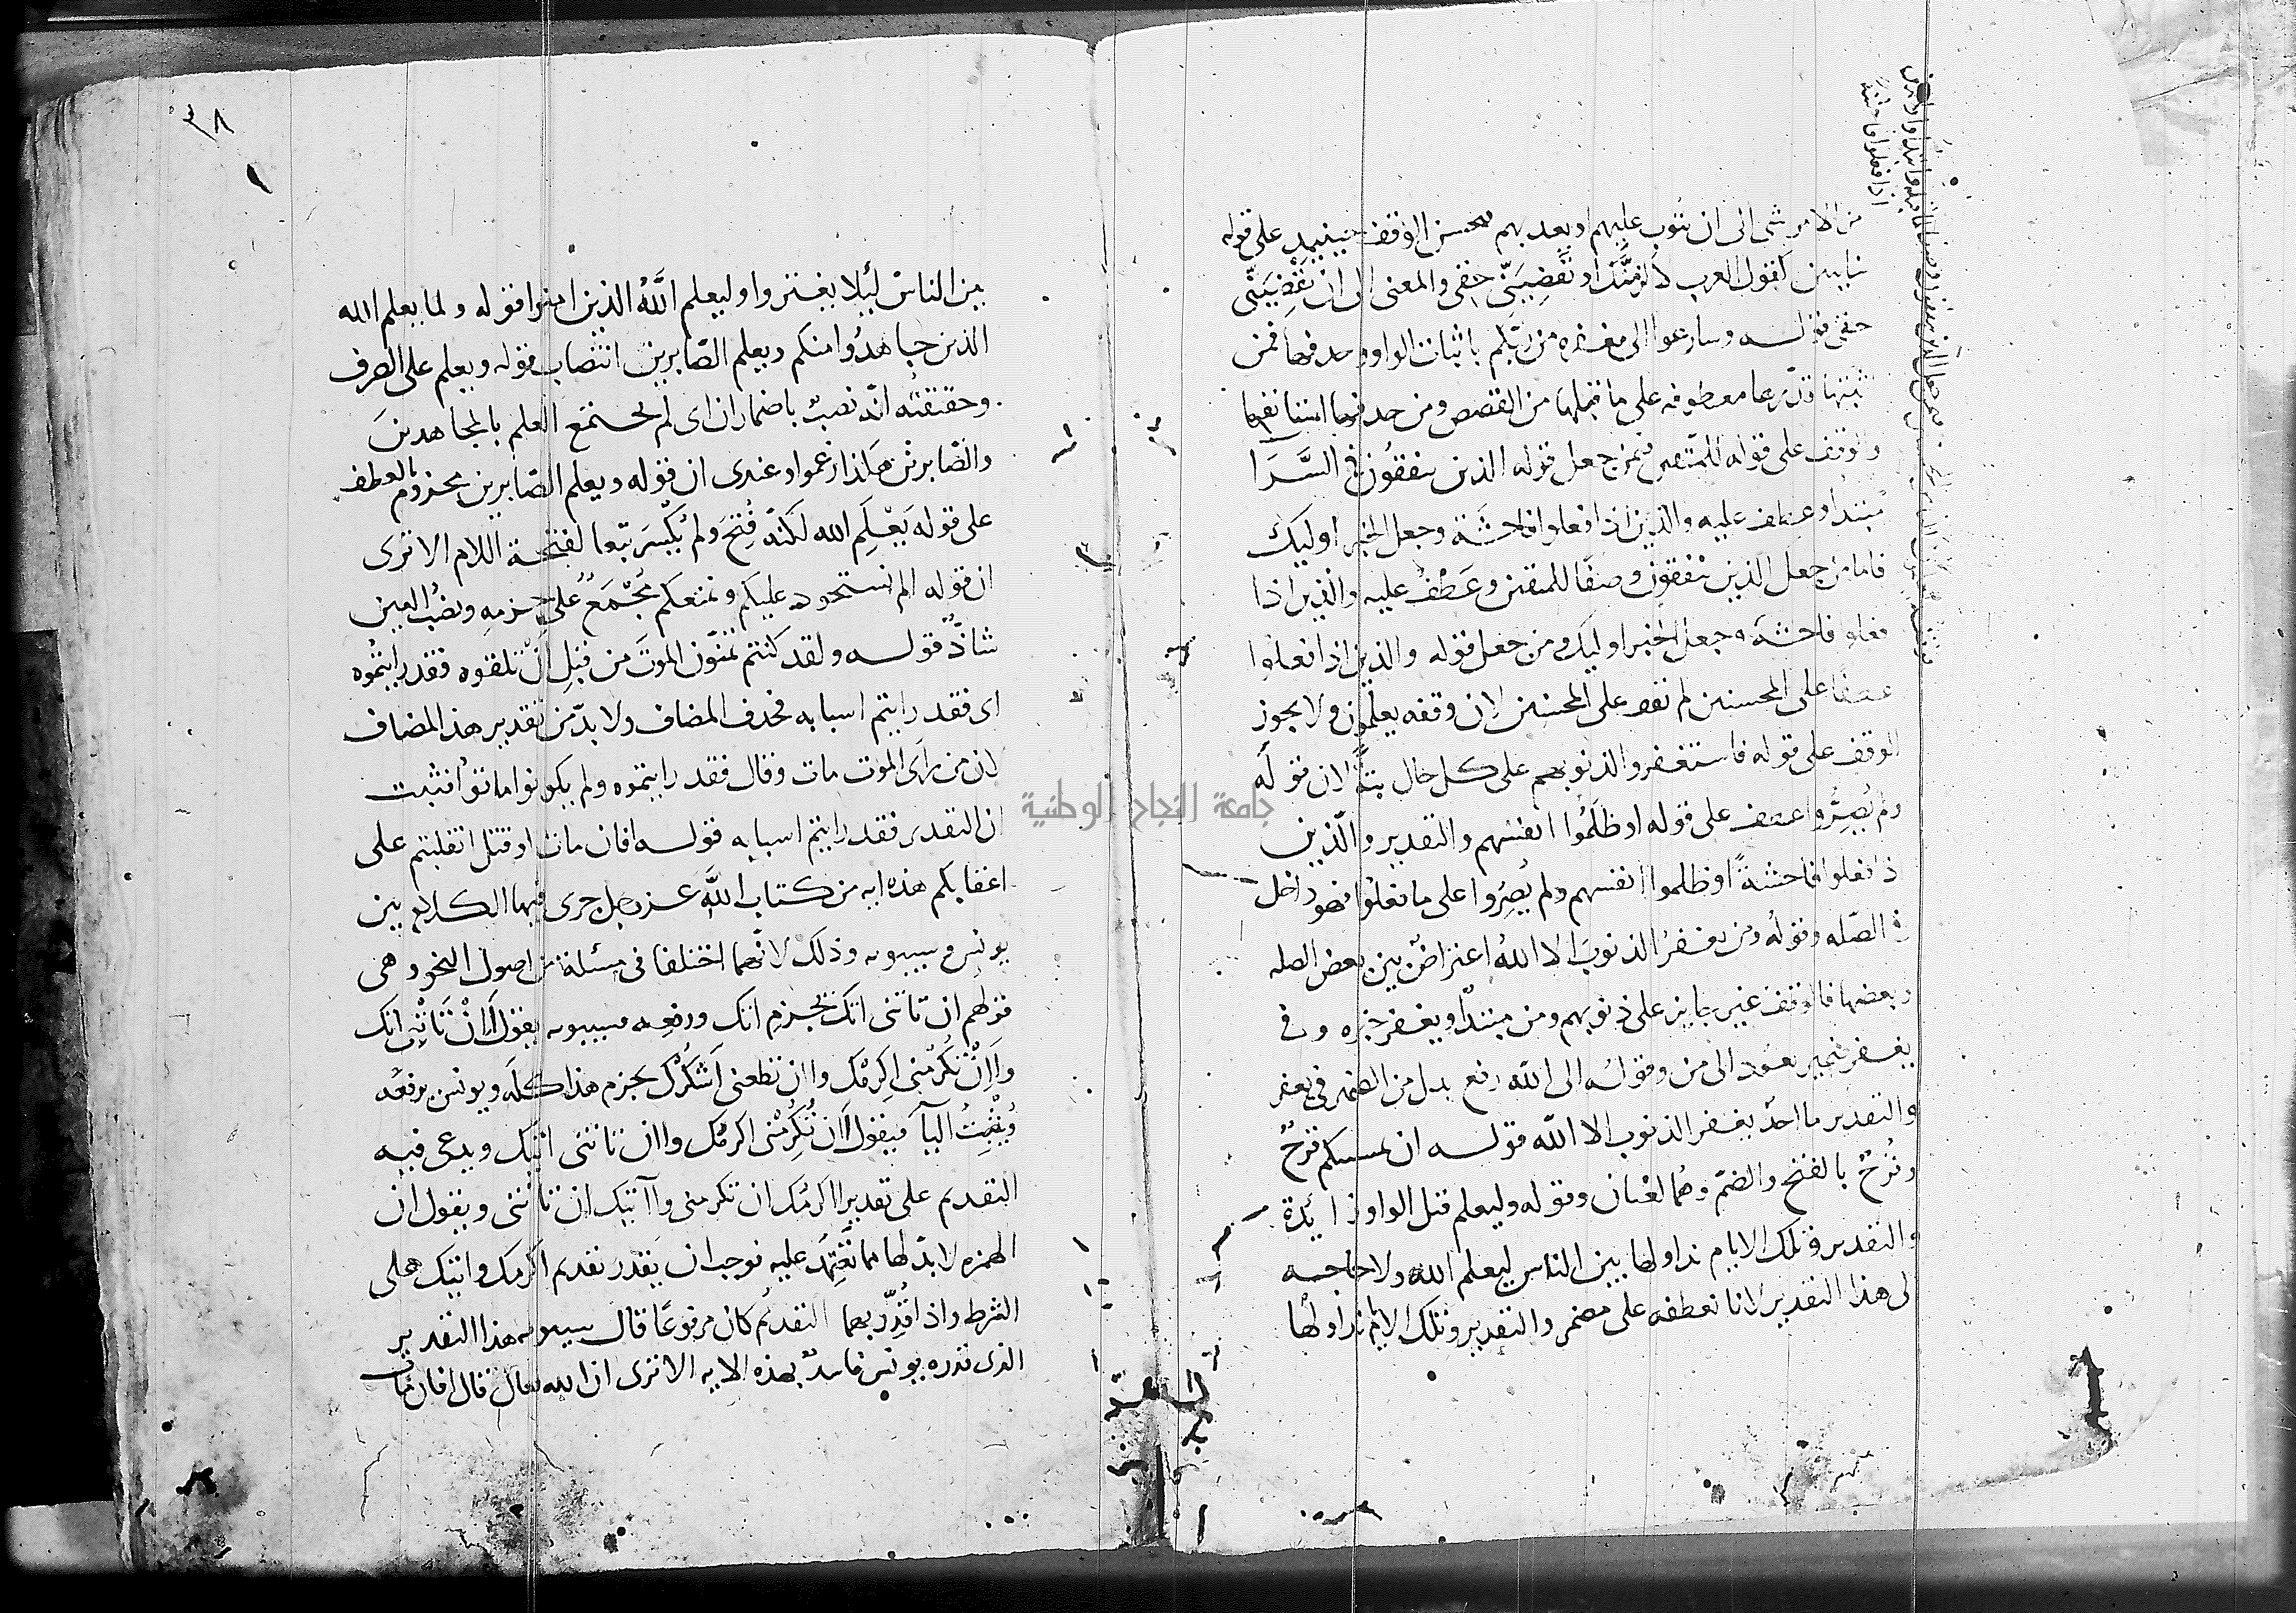 من الامر شى الى ان يتوب عليهم او يعذبهم فحسن الوقف حينئذ على قوله
خايبين كقول العرب لالزمنك او تقضيني حقي والمعنى الى ان تقضيني
حقى قوله وسارعوا الى مغفره من ربكم باثبات الواو وحذفها فمن
اثبتها قدرها معطوفه على ما قبلها من القصص ومن حذفها استانفها
والوقف على قوله للمتقين فمن جعل قوله الذين ينفقون في السرا
مبتدا وعطف عليه والذين اذا فعلوا فاحشة وجعل الخبر اوليك
فاما من جعل الذين ينفقون وصفا للمتقين وعطف عليه والذين اذا
فعلوا فاحشة وجعل الخبر اوليك ومن جعل قوله والذين اذا فعلوا
عطفا على المحسنين لم يقف على المحسنين لان وقفه يعلمون ولا يجوز
الوقف على قوله فاستغفروا لذنوبهم على كل حال بتة لان قوله
ولم يصروا عطف على قوله او ظلموا انفسهم والتقدير والذين
اذا فعلوا فاحشة او ظلموا انفسهم ولم يصروا على ما فعلوا فهو داخل
في الصله وقوله ومن يغفر الذنوب الا الله اعتراض بين بعض الصله
وبعضها فالوقف غير جايز على ذنوبهم ومن مبتدا ويغفر خبره وفي
يغفر ضمير يعود الى من وقوله الا الله رفع بدل من الضمير في يغفر
والتقدير ما احد يغفر الذنوب الا الله قوله ان يمسسكم قرح
وقرح بالفتح والضم وهما لغتان وقوله وليعلم قبل الواو زايدة
والتقدير وتلك الايام نداولها بين الناس ليعلم الله ولا حاجه
الى هذا التقدير لانا نعطفه على مضمر والتقدير وتلك الايام نداولها
٣٨
بين الناس ليلا يغتروا وليعلم الله الذين امنوا قوله ولما يعلم الله
الذين جاهدوا منكم ويعلم الصابرين انتصاب قوله ويعلم على الصرف
وحقيقته انه نصب باضمار ان اى لم يجتمع العلم بالمجاهدين
والصابرين هكذا زعموا وعندى ان قوله ويعلم الصابرين مجزوم بالعطف
على قوله يعلم الله لكنه فتح ولم يكسر تبعا لفتحة اللام الا ترى
ان قوله الم نستحوذ عليكم ونمنعكم مجمع على جزمه ونصب العين
شاذ قوله ولقد كنتم تمنون الموت من قبل ان تلقوه فقد رايتموه
اى فقد رايتم اسبابه فحذف المضاف ولا بد من تقدير هذا المضاف
لان من راى الموت مات وقال فقد رايتموه ولم يكونوا ماتوا فثبت
ان التقدير فقد رايتم اسبابه قوله افان مات او قتل انقلبتم على
اعقابكم هذه ايه من كتاب الله عز وجل جرى فيها الكلام بين
يونس وسيبويه وذلك لانهما اختلفا في مسئلة من اصول النحو وهى
قولهم ان تاتنى اتك بجزم اتك ورفعه فسيبويه يقول اان تاتنى اتك
واان تكرمنى اكرمك واان تطعنى اشكرك بجزم هذا كله ويونس يرفعه
ويثبت اليآ فيقول اان تكرمنى اكرمك واان تاتنى اتيك ويدعى فيه
التقديم على تقدير ااكرمك ان تكرمنى وآآتيك ان تاتنى ويقول ان
الهمزه لا بد لها مما تعتمد عليه فوجب ان يقدر تقديم اكرمك واتيك على
الشرط واذا قدر بهما التقديم كان مرفوعا قال سيبويه هذا التقدير
الذى قدره يونس فاسد بهذه الايه الا ترى ان الله تعالى قال افان مات
جامعة النجاح الوطنية